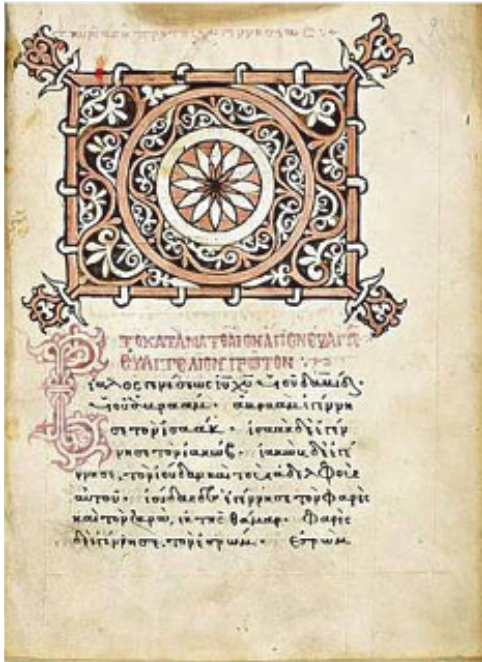 ΤΟ ΚΑΤΑ ΜΑΤΘΑΙΟΝ ΑΓΙΟΝ
ΕΥΑΓΓΕΛΙΟΝ ΠΡΩΤΟΝ
Βίβλος γενέσεως ἰυ χυ υἱοῦ δαυίδ·
υἱοῦ ἀβραάμ· ἀβραὰμ ἐγέννη
σε τὸν ἰσαάκ· ἰσαὰκ δὲ ἐγέν
νησε τὸν ἰακώβ· ἰακὼβ δὲ ἐγέ
ννησε τὸν ἰούδαν καὶ τοὺς ἀδελφοὺς
αὐτοῦ· ἰούδας δὲ ἐγέννησε τὸν φαρὲς
καὶ τὸν ζαρὰ, ἐκ τῆς θάμαρ· φαρὲς
δὲ ἐγέννησε τὸν ἐσρώμ· ἐσρώμ